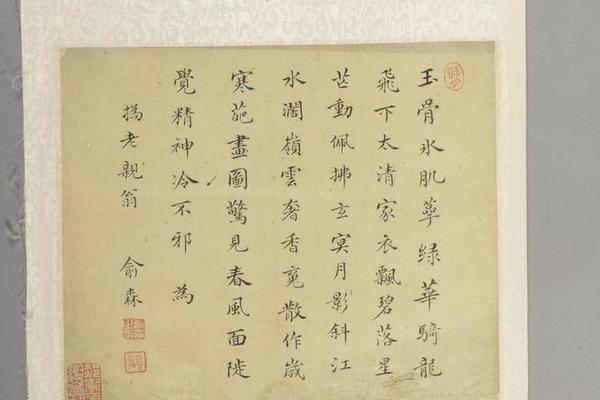 玉骨氷肌萼緑華騎龍
飛下太清家衣飄碧落星
芒動佩拂玄冥月影斜江
水濶嶺雲奢香䰟散作歳
寒葩畫圖驚見春風面陡
覺精神冷不邪為
撝老親翁 俞森